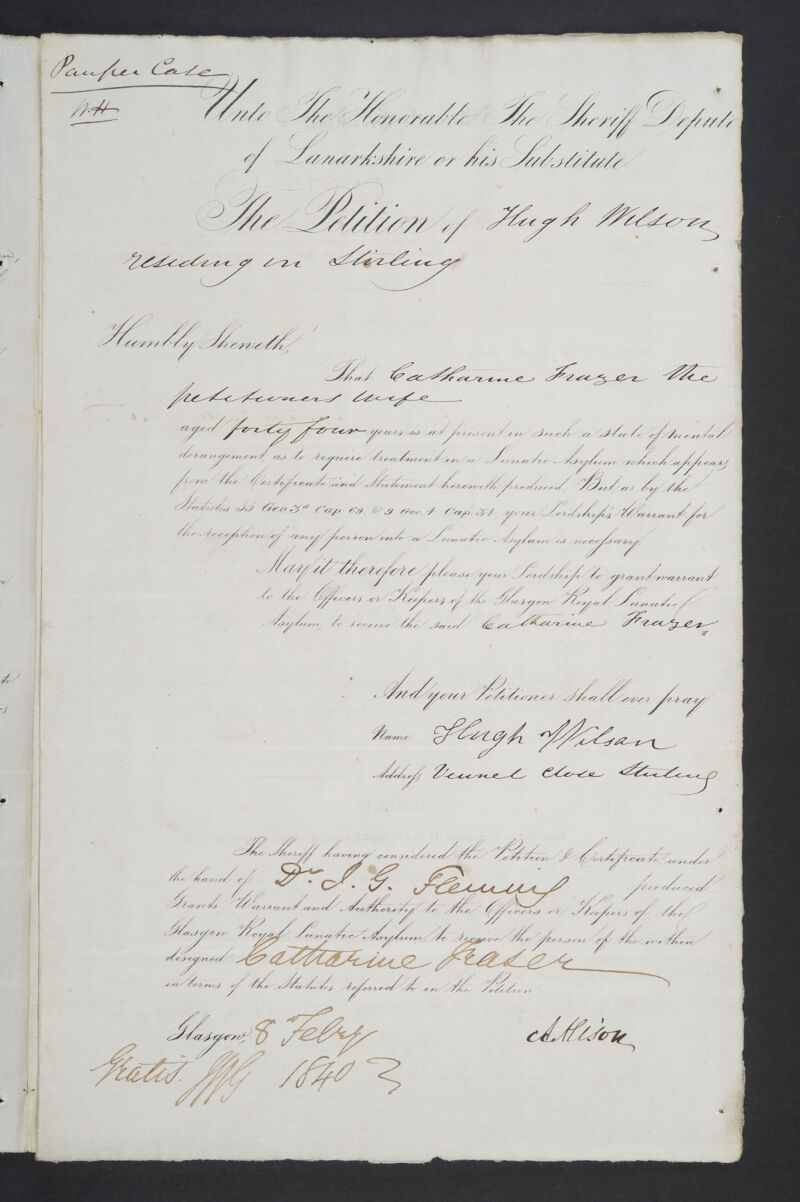 Pauper Case
Unto The Honorable The Sheriff Depute
of Lanarkshire or his Substitute
The Petition of Hugh Wilson
residing in Stirling
Humbly Sheweth,
That Catharine Frazer the
petitioners wife
aged forty four years is at present in such a state of mental
derangement as to require treatment in a Lunatic Asylum, which appears
from the Certificate and Statement herewith produced But as by the
Statutes 55 Geo. 3d Cap. 69. & 9 Geo. 4 Cap. 34. your Lordship's Warrant for
the reception of any person into a Lunatic Asylum is necessary
May it therefore please your Lordship to grant warrant
to the Officers or Keepers of the Glasgow Royal Lunatic
Asylum, to receive the said Catharine Frazer
And your Petitioner shall ever pray
Name Hugh Wilson
Address Vennel Close Stirling
The Sheriff having considered the Petition & Certificate, under
the hand of Dr. J. G. Fleming produced
Grants Warrant and Authority to the Officers or Keepers of the
Glasgow Royal Lunatic Asylum, to receive the person of the within
designed Catharine Fraser
in terms of the Statutes referred to in the Petition
Glasgow, 8 Febry
Alison
Gratis. 1840